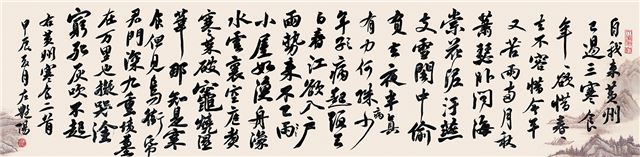 自我来黄州
已过三寒食
年〻欲惜春〻
去不容惜今年
又苦雨两月秋
萧瑟卧闻海
棠花泥污燕
支雪闇中偷
负去夜半真
有力何殊少
年子病起须已
白春江欲入户
雨势来不已雨
小屋如渔舟濛
水云里空庖煮
寒菜破竈烧湿
苇那知是寒
食但见乌衔帋
君门深九重坟墓
在万里也拟哭涂
穷死灰吹不起
右黄州寒食二首
甲辰